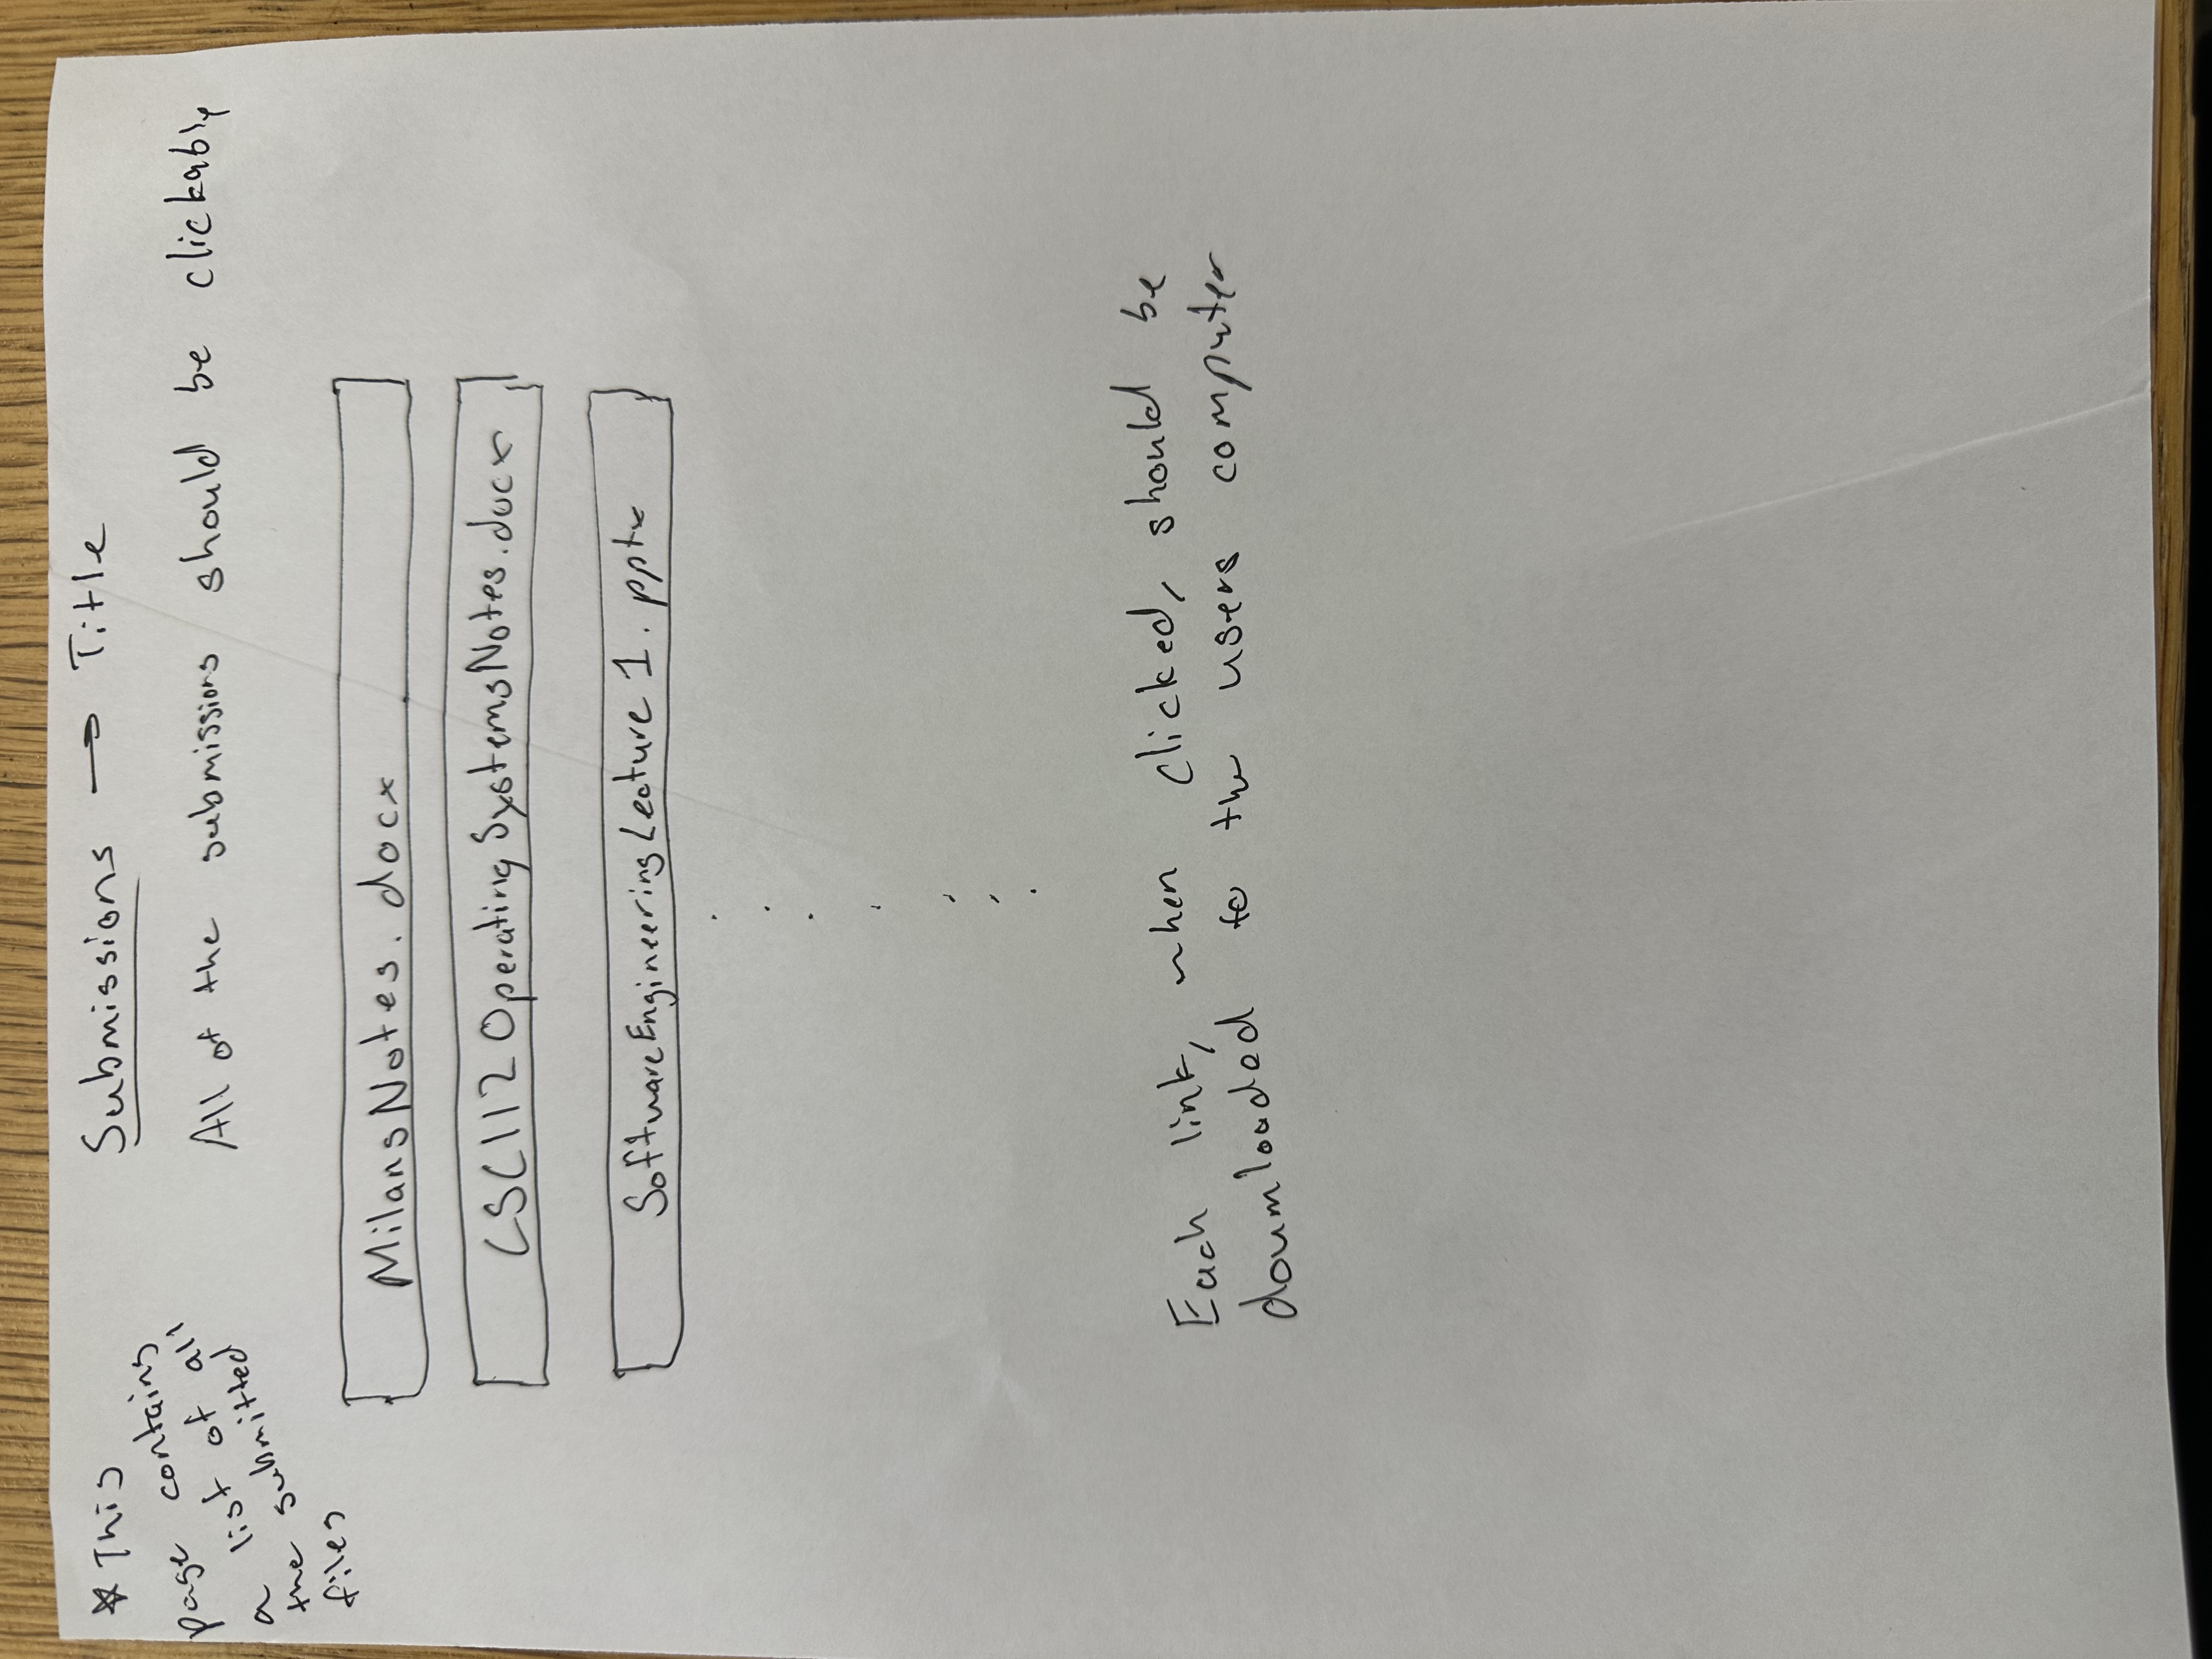 ☆ This
page contains
a list of all
the submitted
files
Submissions → Title
All of the submissions should be clickable
MilansNotes.docx
CSC112OperatingSystemsNotes.docx
SoftwareEngineeringLecture1.pptx
Each link, when clicked, should be
downloaded to the users computer